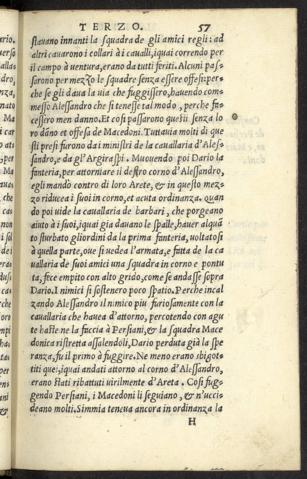 TERZO. 57
stauano innanti la squadra de gli amici regij: ad
altri cauarono i collari à i caualli, iquai correndo per
il campo à uentura, erano da tutti feriti. Alcuni pas-
sarono per mezzo le squadre senza essere offesi: per-
che se gli daua la uia che fuggissero, hauendo com-
messo Alessandro che si tenesse tal modo, perche fa-
cessero men danno. Et cosi passarono questi senza lo
ro dāno et offesa de Macedoni. Tuttauia molti di que
sti presi furono da i ministri de la cauallaria d'Ales-
sandro, e da gl'Argiraspi. Muouendo poi Dario la
fanteria, per attorniare il destro corno d'Alessandro,
egli mandò contro di loro Arete, & in questo mez-
zo riducea i suoi in corno, et acuta ordinanza. quan
do poi uide la cauallaria de barbari, che porgeano
aiuto à i suoi, iquai gia dauano le spalle, hauer alquā
to sturbato gliordini da la prima fanteria, uoltatosi
à quella parte, oue si uedea l'armata, e fatta de la ca
uallaria de suoi amici una squadra in corno e pontu
ta, fece empito con alto grido, come se andasse sopra
Dario. I nimici si sostenero poco spatio. Perche incal
zando Alessandro il nimico piu furiosamente con la
cauallaria che hauea d'attorno, percotendo con agu
te haste ne la faccia à Persiani, & la squadra Mace
donica ristretta assalendoli, Dario perduta già la spe
ranza, fu il primo à fuggire. Ne meno erano sbigot-
titi quei, iquai andati attorno al corno d'Alessandro,
erano stati ributtati uirilmente d'Areta. Cosi fug-
gendo Persiani, i Macedoni li seguiano, & n'ucci-
deano molti. Simmia teneua ancora in ordinanza la
H